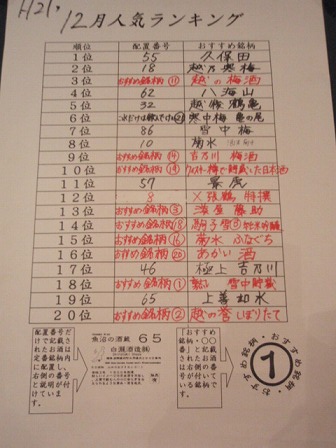 H21.
12月人気ランキング
順位 配置番号 おすすめ銘柄
1位 55 久保田
2位 18 越乃寒梅
3位 おすすめ銘柄⑪ 越の梅酒
4位 62 八海山
5位 32 越後鶴亀
6位 寒中梅 亀の尾
7位 86 雪中梅
8位 10 菊水
9位 おすすめ銘柄⑭ 吉乃川 梅酒
10位 おすすめ銘柄⑲ ウイスキー樽で貯蔵した日本酒
11位 57
12位 8 〆張鶴
13位 おすすめ銘柄③
14位 おすすめ銘柄⑱
15位 おすすめ銘柄⑯ 菊水 ふなぐち
16位 おすすめ銘柄⑳ あかい酒
17位 46 極上 吉乃川
18位 おすすめ銘柄① 雪中貯蔵
19位 65 上善如水
20位 おすすめ銘柄② しぼりたて
配置番号だけで記載されたお酒は定番銘柄内にあります。右側の番号と説明が付けています。
魚沼の酒蔵 65
白瀧酒造㈱
「おすすめ銘柄・〇〇番」と記載されたお酒は右側の番号が付いている銘柄です。
おすすめ銘柄・おすすめ銘柄・おすすめ銘柄
①